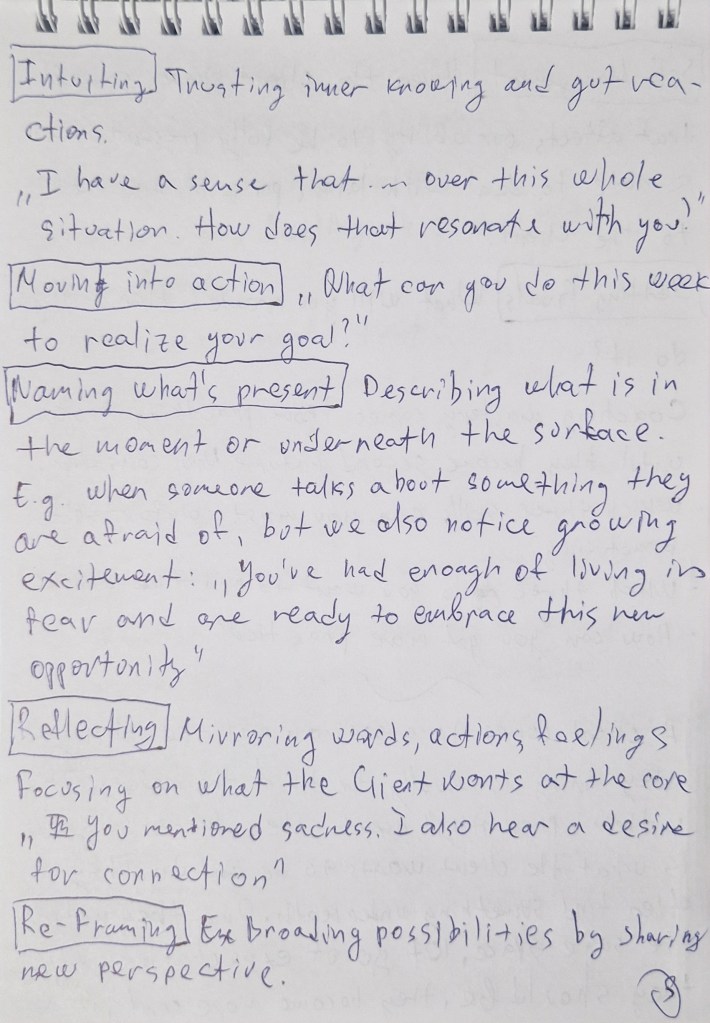 Intuiting Trusting inner knowing and gut rea-
ctions.
„I have a sense that ... over this whole
situation. How does that resonate with you?"
Moving into action „What can you do this week
to realize your goal?"
Naming what's present Describing what is in
the moment or underneath the surface.
E.g. when someone talks about something they
are afraid of, but we also notice growing
excitement: „You've had enough of living in
fear and are ready to embrace this new
opportunity"
Reflecting Mirroring words, actions, feelings
Focusing on what the Client wants at the core
„You mentioned sadness. I also hear a desire
for connection"
Re-framing Broading possibilities by sharing
new perspective.